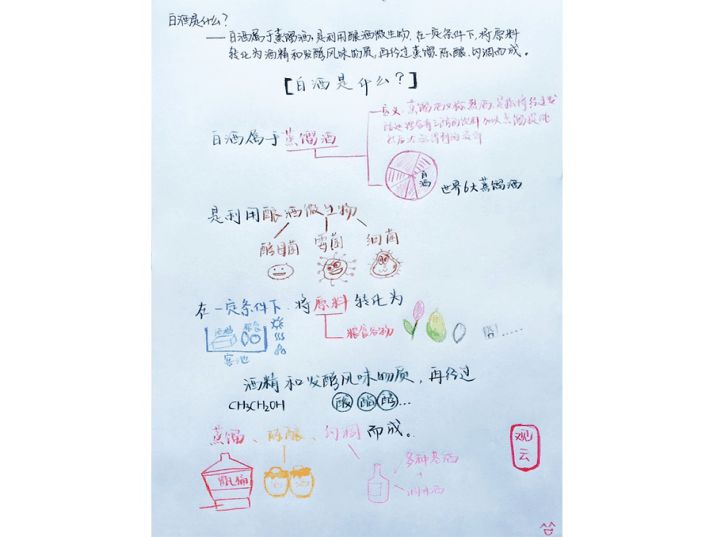 白酒是什么?
——白酒属于蒸馏酒,是利用酿酒微生物,在一定条件下,将原料
转化为酒精和发酵风味物质,再经过蒸馏、陈酿、勾调而成。
【白酒是什么?】
白酒属于蒸馏酒
白酒
世界6大蒸馏酒
是利用酿酒微生物
酵母菌 霉菌 细菌
在一定条件下,将原料转化为
粮食谷物
窖池
酒精和发酵风味物质,再经过
CH3CH2OH
酸 酯 醛...
蒸馏、陈酿、勾调而成。
观云
多种基酒
调味酒